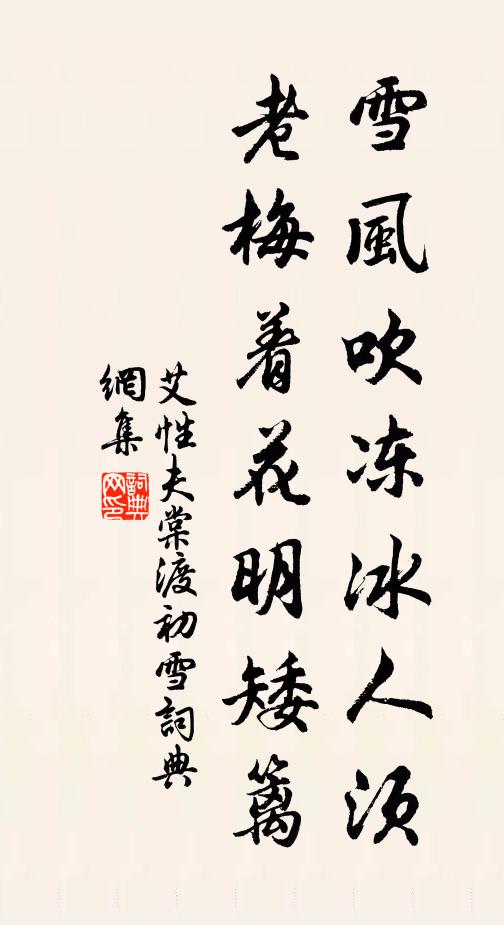 雪風吹冻冰人须
老梅着花明矮籬
艾性夫棠渡初雪詞典
網集
詞典
网印